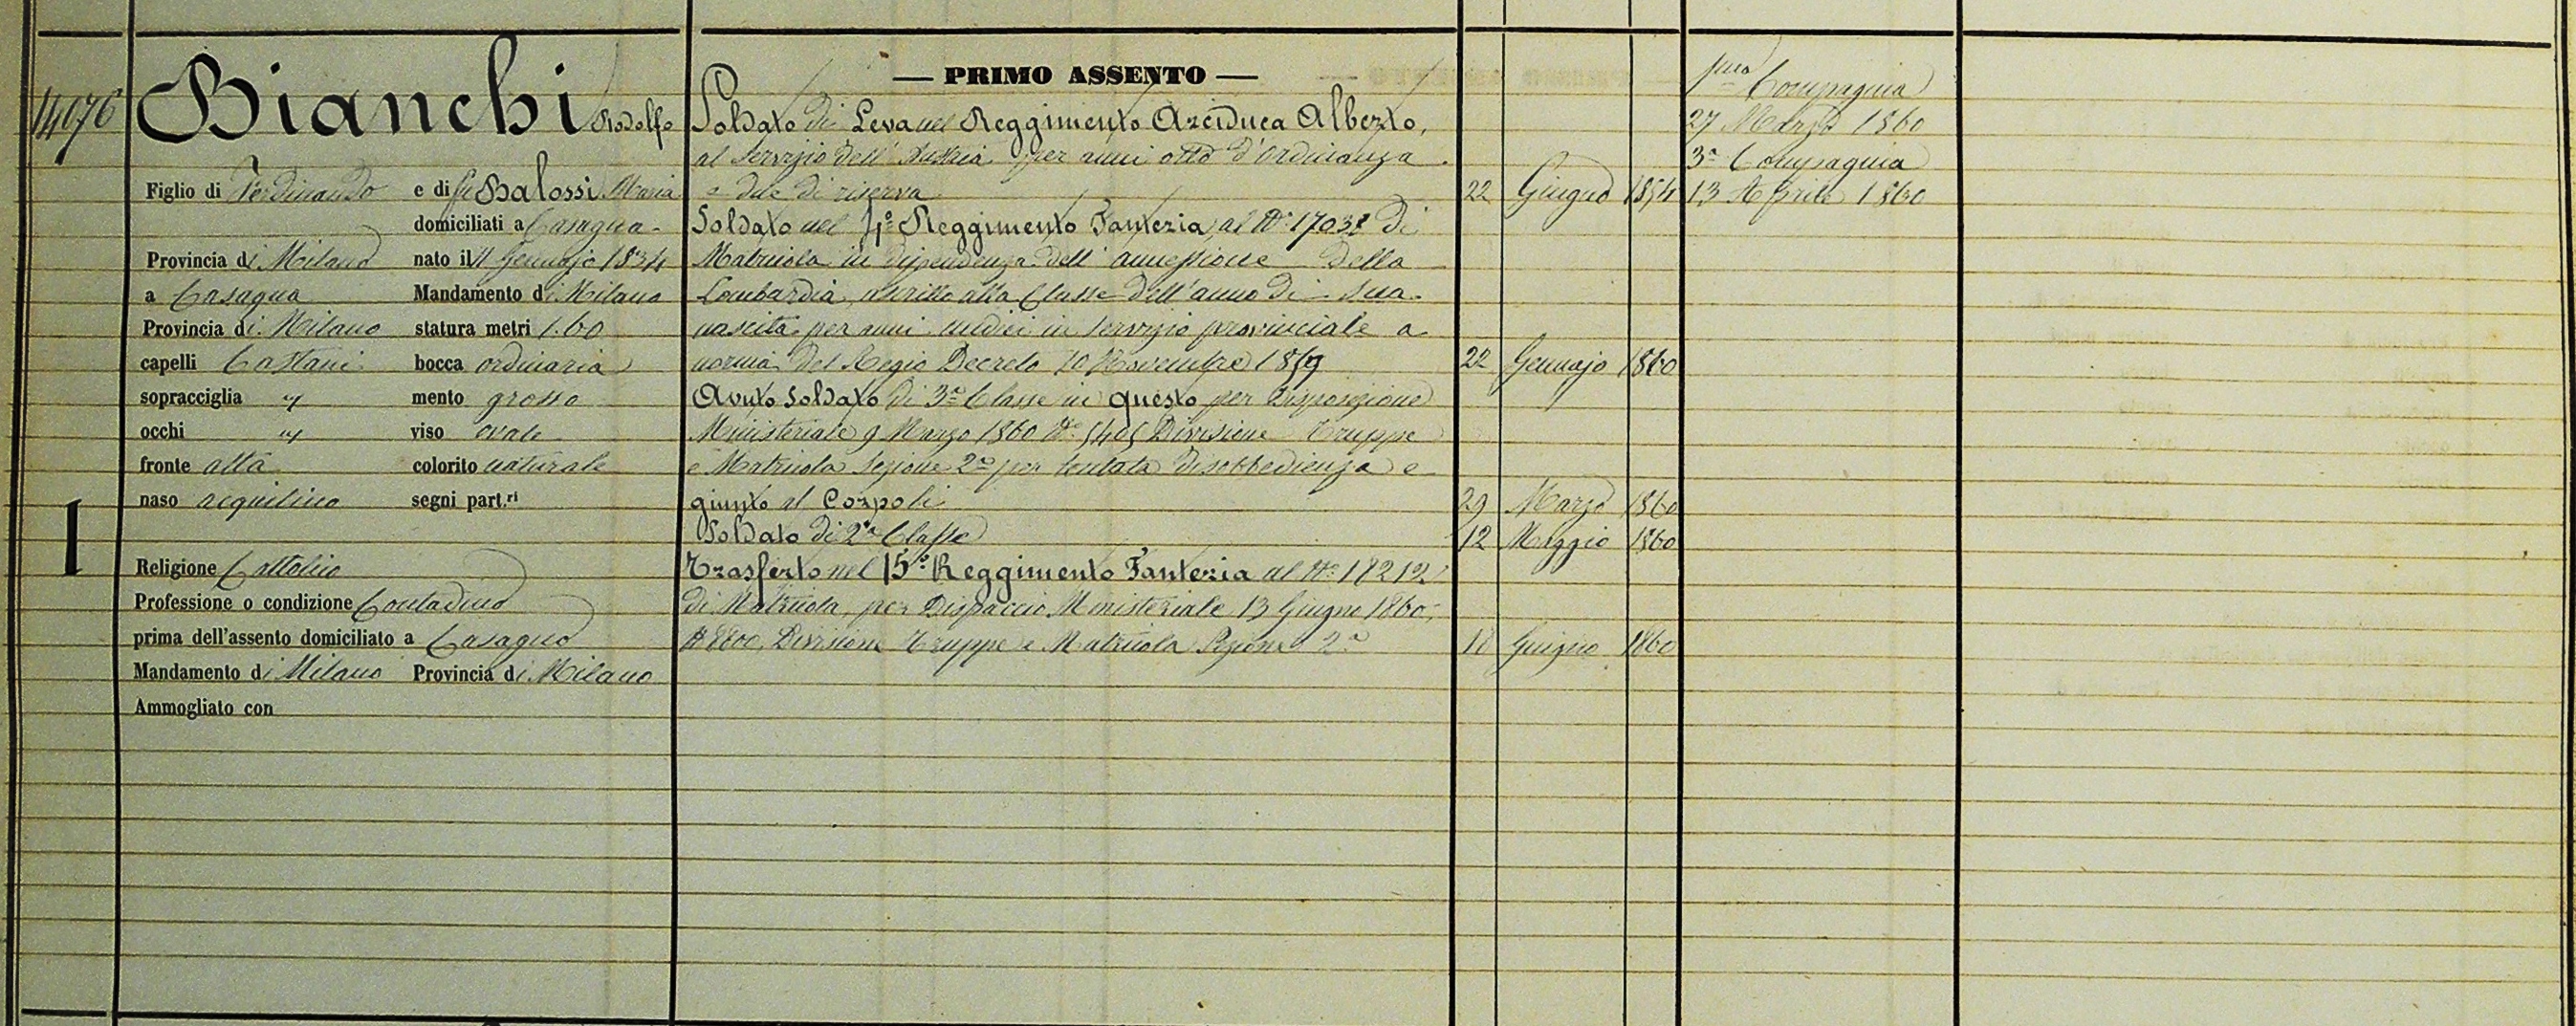 14076
Bianchi Rodolfo
Figlio di Ferdinando e di fu Balossi Maria
domiciliati a Casagua
Provincia di Milano nato il 11 Gennajo 1834
a Casagua Mandamento di Milano
Provincia di Milano statura metri 1.60
capelli Castani bocca ordinaria
sopracciglia " mento grosso
occhi " viso ovale
fronte alta colorito naturale
naso acquilino segni part.ri
1
Religione Cattolico
Professione o condizione Contadino
prima dell'assento domiciliato a Casaguo
Mandamento di Milano Provincia di Milano
Ammogliato con
— PRIMO ASSENTO —
Soldato di Leva nel Reggimento Arciduca Alberto,
al servizio dell'Austria per anni otto d'ordinanza
e due di riserva 22 Giugno 1854
Soldato nel 4º Reggimento Fanteria al Nº 17032 di
Matricola in dipendenza dell'annessione della
Lombardia, ascritto alla Classe dell'anno di sua
nascita per anni undici in servizio provinciale a
norma del Regio Decreto 10 Novembre 1859 22 Gennajo 1860
Avuto soldato di 3ª Classe in questo per Disposizione
Ministeriale 9 Marzo 1860 Nº 5405 Divisione Truppe
e Matricola Sezione 2ª per tentata disobbedienza e
giunto al Corpo li 29 Marzo 1860
Soldato di 2ª Classe 12 Maggio 1860
Trasferto nel 15º Reggimento Fanteria al Nº 18212
di Matricola, per Dispaccio Ministeriale 13 Giugno 1860,
Nº 8800, Divisione Truppe e Matricola Sezione 2ª 18 Giugno 1860
Compagnia
27 Marzo 1860
3ª Compagnia
13 Aprile 1860